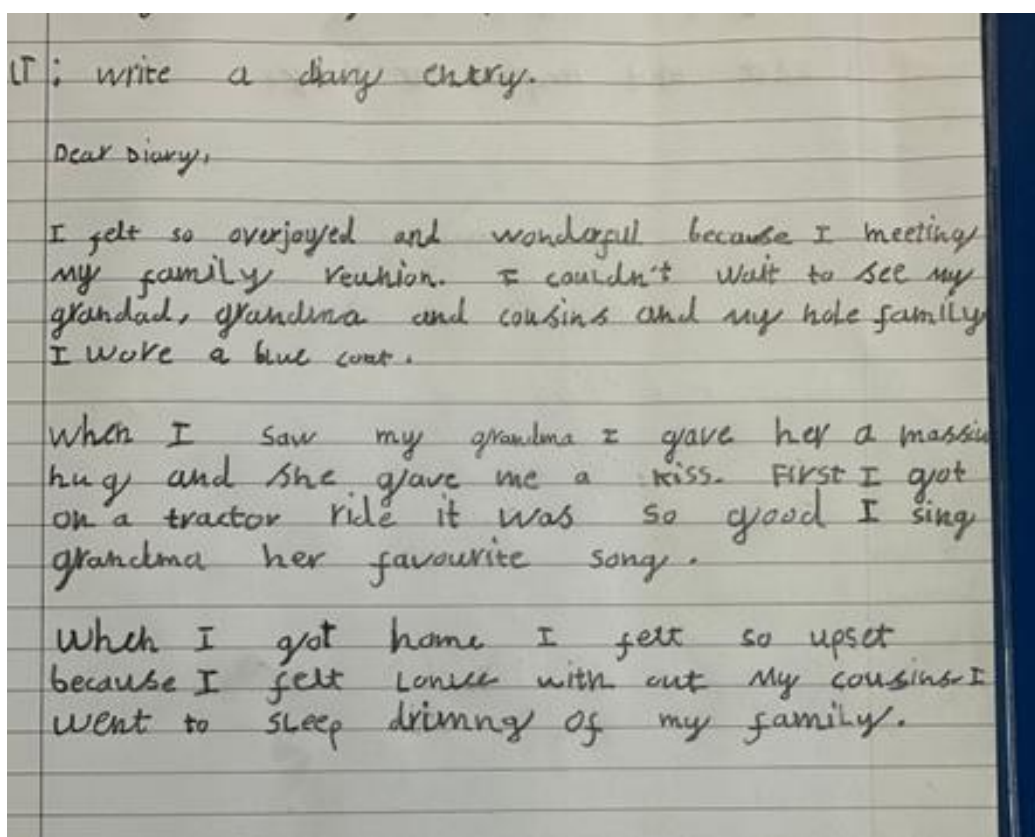 LT: write a diary entry.
Dear Diary,
I felt so overjoyed and wonderful because I meeting
my family reunion. I couldn't wait to see my
grandad, grandma and cousins and my hole family
I wore a blue coat.
When I saw my grandma I gave her a massiv
hug and she gave me a kiss. First I got
on a tractor ride it was so good I sing
grandma her favourite song.
When I got home I felt so upset
because I felt with out my cousins. I
went to sleep drimng of my family.